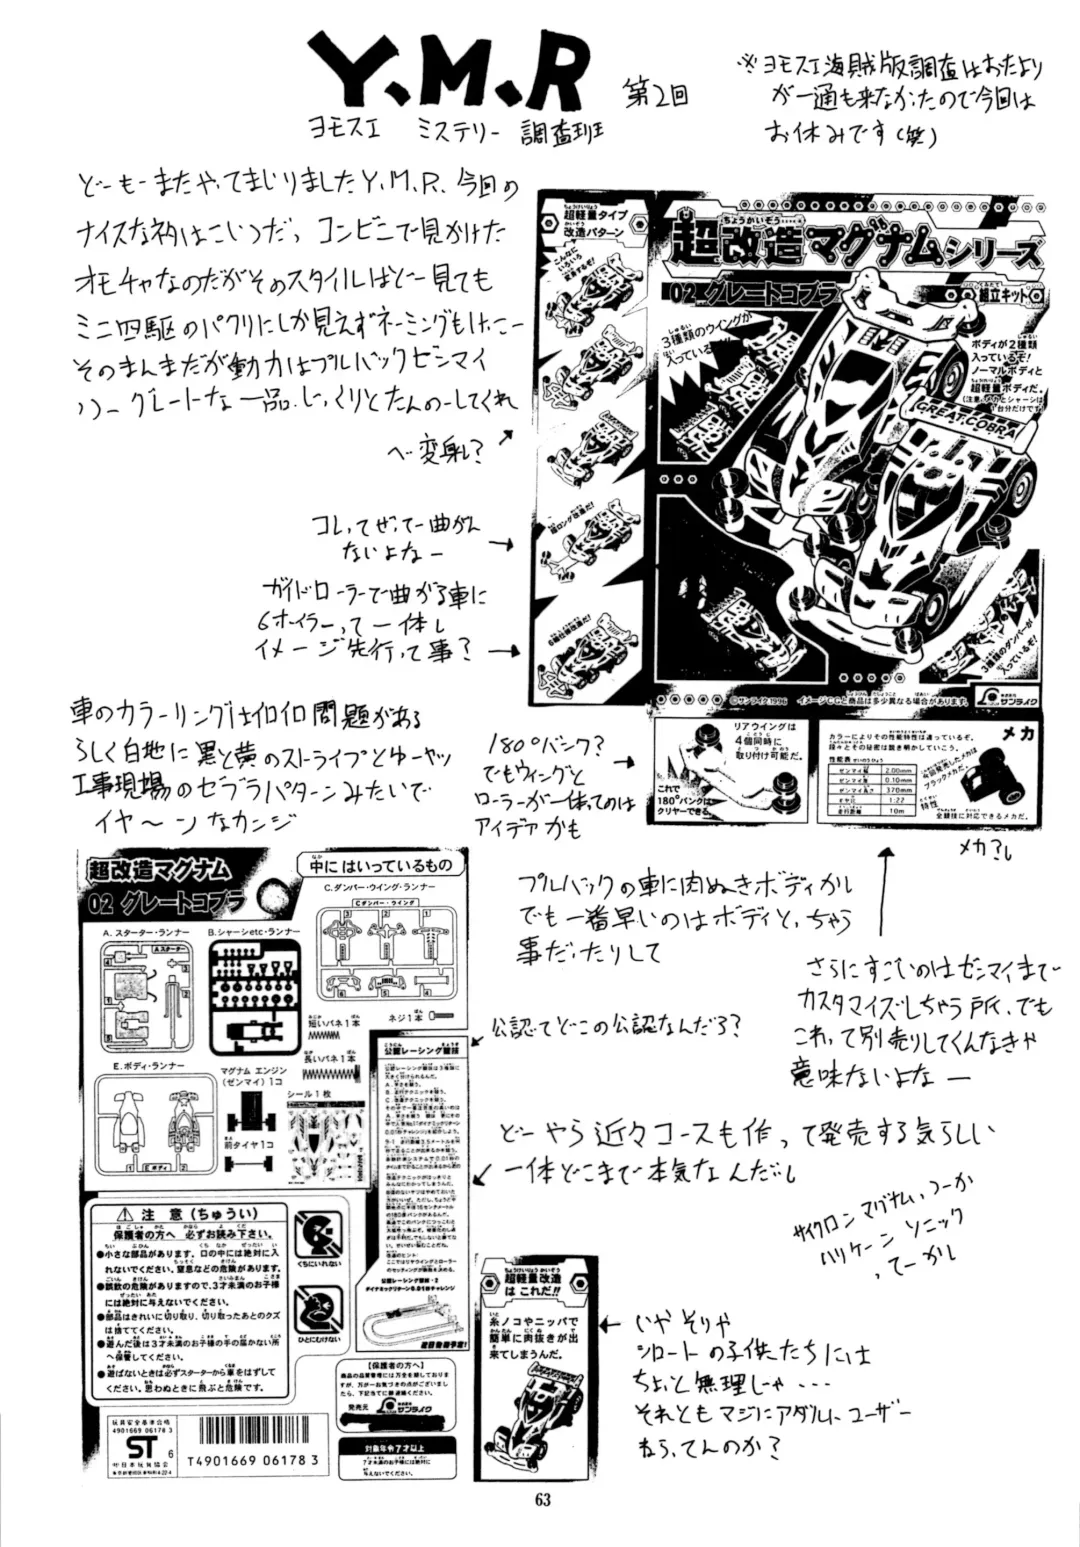 Y.M.R
第2回
ヨモスエ ミステリー 調査班
※ヨモスエ海賊版調査はおたより
が一通も来なかったので今回は
お休みです(笑)
どーもーまたやってまいりましたY.M.R. 今回の
ナイスな物はこいつだっ コンビニで見かけた
オモチャなのだがそのスタイルはどー見ても
ミニ四駆のパクリにしか見えずネーミングもけっこー
そのまんまだが動力はプルバックゼンマイ
ソソー グレートな一品、じっくりとたんのーしてくれ
へ〜変身し?
コレってぜってー曲がん
ないよなー
ガイドローラーで曲がる車に
6ホイラーって一体し
イメージ先行って事?
車のカラーリングはイロイロ問題がある
らしく白地に黒と黄のストライプとゆーヤツ
工事現場のゼブラパターンみたいで
イヤ〜ンなカンジ
180°バンク?
でもウイングと
ローラーが一体ってのは
アイデアかも
超軽量タイプ
改造パターン
こんなに
いろいろ
変身するぞ!
超ロング改造だ!
超改造マグナムシリーズ
02 グレートコブラ
組立キット
3種類のウイングが
入っている!
ボディが2種類
入っているぞ!
ノーマルボディと
超軽量ボディだ。
GREAT.COBRA
3種類のダンパーが
入っているぞ!
©サンライク1996
イメージCGと商品は多少異なる場合があります。
サンライク
リアウイングは
4個同時に
取り付け可能だ。
これで
180°バンクは
クリヤーできる。
カラーによりその性能特性は違っているぞ。
段々とその秘密は説き明かしていこう。
メカ
性能表
ゼンマイ幅 2.00mm
ゼンマイ厚 0.10mm
ゼンマイ長さ 370mm
ギヤ比 1:22
走行距離 10m
今回発売したメカは
ブラックメカだ。
特性
全競技に対応できるメカだ。
メカ?し
プルバックの車に肉ぬきボディかし
でも一番早いのはボディとっちゃう
事だったりして
さらにすごいのはゼンマイまで
カスタマイズしちゃう所、でも
これって別売りしてくんなきゃ
意味ないよなー
超改造マグナム
02 グレートコブラ
中にはいっているもの
A. スターター・ランナー
B. シャーシetc・ランナー
C. ダンパー・ウイング・ランナー
E. ボディ・ランナー
短いバネ1本
ネジ1本
長いバネ1本
マグナム エンジン
(ゼンマイ)1コ
シール1枚
前タイヤ1コ
公認てどこの公認なんだろ?
公認レーシング競技
どーやら近々コースも作って発売する気らしい
一体どこまで本気なんだし
サイクロンマグナムっつーか
ハリケーンソニック
ってーかし
公認レーシング競技・2
ダイナミックリターン0.01秒チャレンジ
近日発売予定!
⚠ 注意(ちゅうい)
保護者の方へ 必ずお読み下さい。
●小さな部品があります。口の中には絶対に入
れないでください。窒息などの危険があります。
●誤飲の危険がありますので、3才未満のお子様
には絶対に与えないでください。
●部品はきれいに切り取り、切り取ったあとのクズ
は捨ててください。
●遊んだ後は3才未満のお子様の手の届かない所
へ保管してください。
●遊ばないときは必ずスターターから車をはずして
ください。思わぬときに飛ぶと危険です。
くちにいれない
ひとにむけない
玩具安全基準合格
4901669 06178 3
ST
6
㈳日本玩具協会
T4901669 06178 3
【保護者の方へ】
商品の品質管理には万全を期しております
が、万が一お気づきの点がございまし
たら、下記までご連絡ください。
発売元 サンライク
対象年令7才以上
超軽量改造
はこれだ!!
糸ノコやニッパで
簡単に肉抜きが出
来てしまうんだ。
いやそりゃ
シロートの子供たちには
ちょっと無理じゃ・・・・
それともマジにアダルトユーザー
ねらってんのか?
63